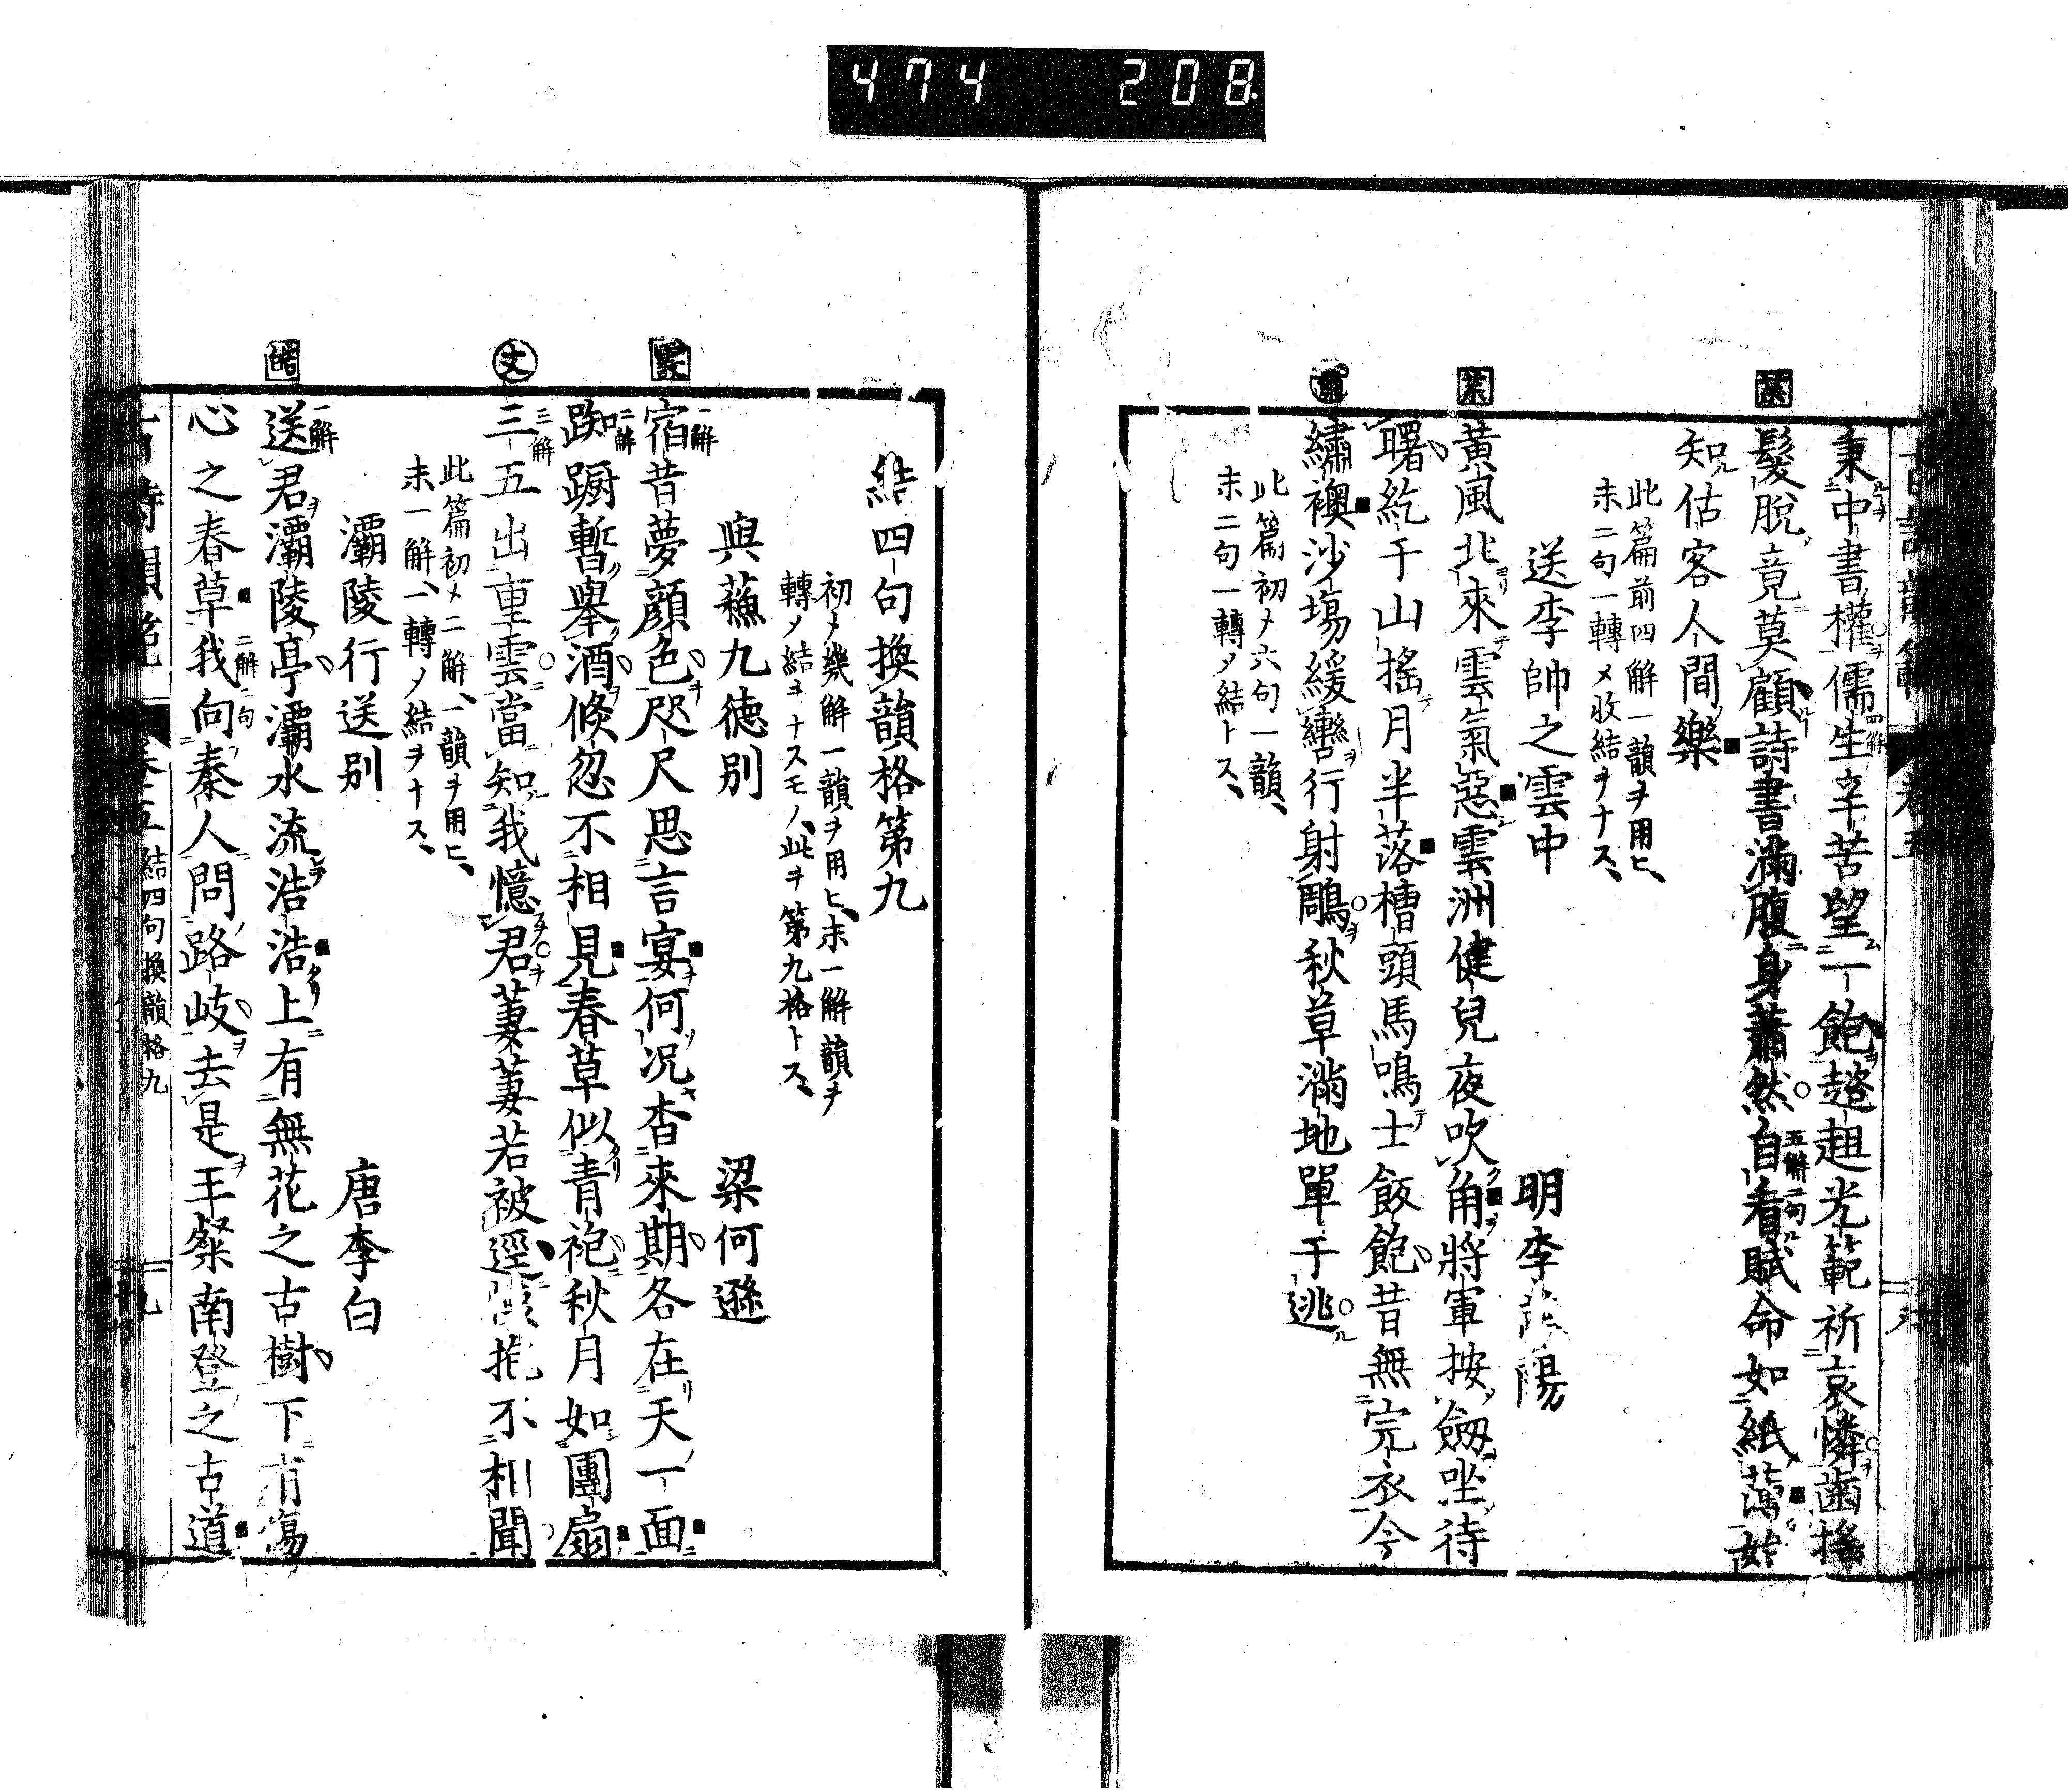 474 208
秉中書權儒生辛苦望一飽趦趄光範祈哀憐齒搖
髮脫竟莫顧詩書滿腹身蕭然自看賦命如紙薄始
知估客人間樂
此篇前四解一韻ヲ用ヒ、
末二句一轉〆收結ヲナス、
送李帥之雲中 明李 陽
黃風北來雲氣惡雲洲健兒夜吹角將軍按劒坐待
曙紇干山搖月半落槽頭馬鳴士飯飽昔無完衣今
繡襖沙塲緩轡行射鵰秋草滿地單于逃
此篇初〆六句一韻、
末二句一轉〆結トス、
結四句換韻格第九
初〆幾解一韻ヲ用ヒ、末一解韻ヲ
轉〆結ヲナスモノ、此ヲ第九格トス、
與蘓九德別 梁何遜
宿昔夢顏色咫尺思言宴何况杳來期各在天一面
踟蹰暫舉酒倏忽不相見春草似青袍秋月如團扇
三五出重雲當知我憶君萋萋若被逕 抱不相聞
此篇初〆二解、一韻ヲ用ヒ、
末一解、一轉〆結ヲナス、
灞陵行送別 唐李白
送君灞陵亭灞水流浩浩上有無花之古樹下有傷
心之春草我向秦人問路岐去是王粲南登之古道
結四句換韻格九